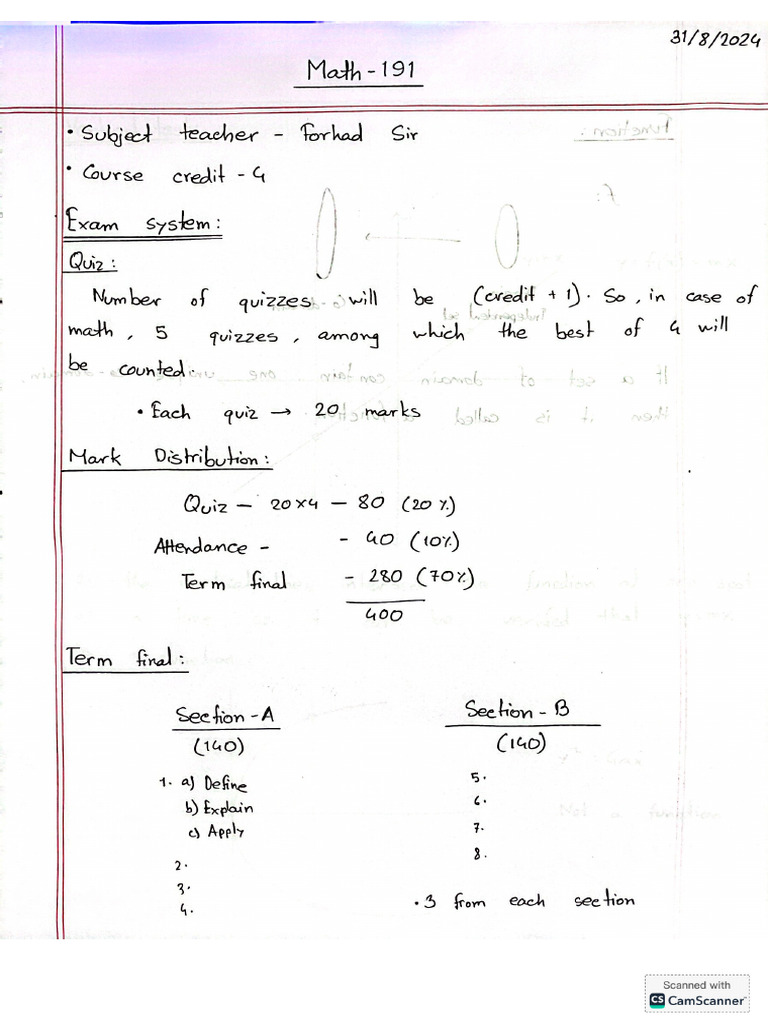 31/8/2024
Math-191
• Subject teacher - Forhad Sir
• Course credit - 4
Exam system:
Quiz:
Number of quizzes will be (credit + 1). So, in case of
math, 5 quizzes, among which the best of 4 will
be counted.
• Each quiz → 20 marks
Mark Distribution:
Quiz — 20×4 — 80 (20%)
Attendance - - 40 (10%)
Term final - 280 (70%)
400
Term final:
Section-A Section-B
(140) (140)
1. a) Define 5.
b) Explain 6.
c) Apply 7.
2. 8.
3.
4. • 3 from each section
Scanned with
CS CamScanner